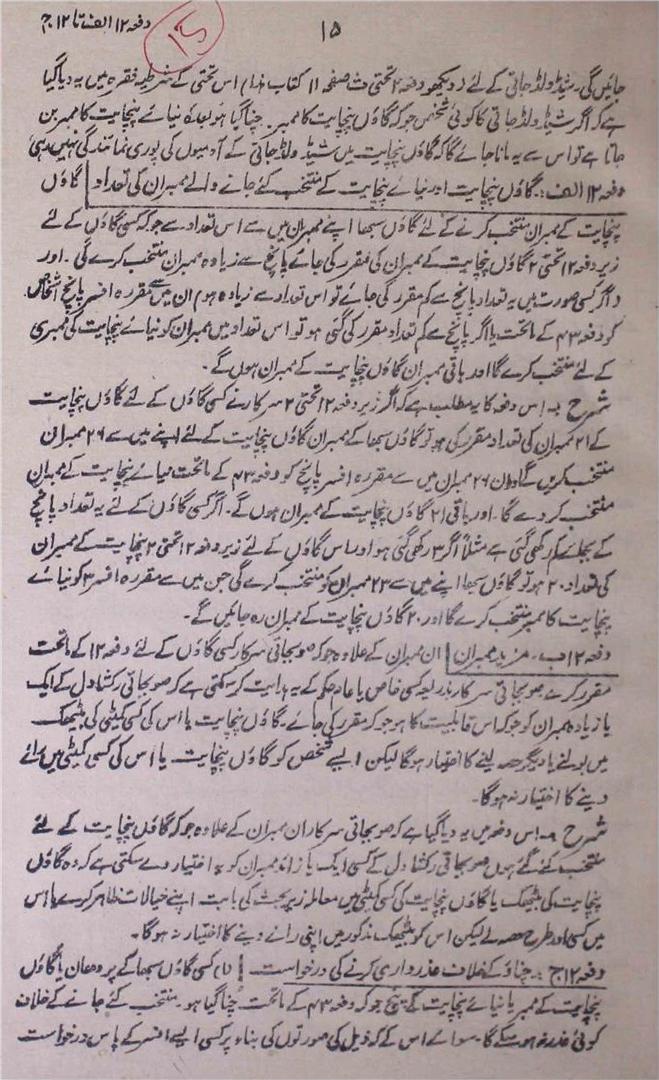 دفعہ ۱۲ الف تا ۱۲ ج
۱۵
15
جائیں گی۔ شیڈولڈ جاتی کے لئے (دیکھو دفعہ ۲ تحتی ث صفحہ ۱۱ کتاب ہذا) اس تحتی کے شرطیہ فقرہ میں یہ دیا گیا
ہے کہ اگر شیڈولڈ جاتی کا کوئی شخص جو کہ گاؤں پنچایت کا ممبر۔ چنا گیا ہو بعدہ نیائے پنچایت کا ممبر بن
جاتا ہے تو اس سے یہ مانا جائے گا کہ گاؤں پنچایت میں شیڈولڈ جاتی کے آدمیوں کی پوری نمائندگی نہیں رہی
دفعہ ۱۲ الف:۔ گاؤں پنچایت اور نیائے پنچایت کے منتخب کئے جانے والے ممبران کی تعداد گاؤں
پنچایت کے ممبران منتخب کرنے کے لئے گاؤں سبھا اپنے ممبران میں سے اس تعداد سے جو کہ کسی گاؤں کے لئے
زیر دفعہ ۱۲ تحتی ۲ گاؤں پنچایت کے ممبران کی مقرر کی جائے پانچ سے زیادہ ممبران منتخب کرے گی۔ اور
اگر کسی صورت میں یہ تعداد پانچ سے کم مقرر کی جائے تو اس تعداد سے زیادہ ہو ان میں سے مقررہ افسر پانچ اشخاص
کو دفعہ ۴۳ کے ماتحت یا اگر پانچ سے کم تعداد مقرر کی گئی ہو تو اس تعداد میں ممبران کو نیائے پنچایت کی ممبری
کے لئے منتخب کرے گا اور باقی ممبران گاؤں پنچایت کے ممبران ہوں گے۔
شرح :۔ اس دفعہ کا یہ مطلب ہے کہ اگر زیر دفعہ ۱۲ تحتی ۲ سرکار نے کسی گاؤں کے لئے گاؤں پنچایت
کے ۲۱ ممبران کی تعداد مقرر کی ہو تو گاؤں سبھا کے ممبران گاؤں پنچایت کے لئے اپنے میں سے ۲۶ ممبران
منتخب کریں گے اور ان ۲۶ ممبران میں سے مقررہ افسر پانچ کو دفعہ ۴۳ کے ماتحت نیائے پنچایت کے ممبران
منتخب کر دے گا۔ اور باقی ۲۱ گاؤں پنچایت کے ممبران ہوں گے۔ اگر کسی گاؤں کے لئے یہ تعداد پانچ
کے بجائے کم رکھی گئی ہے مثلاً اگر ۳ رکھی گئی ہو اور اس گاؤں کے لئے زیر دفعہ ۱۲ تحتی ۲ پنچایت کے ممبران
کی تعداد ۲۰ ہو تو گاؤں سبھا اپنے میں سے ۲۳ ممبران کو منتخب کرے گی جن میں سے مقررہ افسر ۳ کو نیائے
پنچایت کا ممبر منتخب کرے گا اور ۲۰ گاؤں پنچایت کے ممبران رہ جائیں گے۔
دفعہ ۱۲ ب۔ مزید ممبران ان ممبران کے علاوہ جو کہ صوبجاتی سرکار کسی گاؤں کے لئے دفعہ ۱۲ کے ماتحت
مقرر کرے صوبجاتی سرکار بذریعہ کسی خاص یا عام حکم کے یہ ہدایت کر سکتی ہے کہ صوبجاتی رکشا دل کے ایک
یا زیادہ ممبران کو جو کہ اس قابلیت کا ہو جو کہ مقرر کی جائے۔ گاؤں پنچایت یا اس کی کسی کمیٹی کی بیٹھک
میں بولنے یا دیگر حصہ لینے کا اختیار ہوگا لیکن ایسے شخص کو گاؤں پنچایت یا اس کی کسی کمیٹی میں رائے
دینے کا اختیار نہ ہوگا۔
شرح :۔ اس دفعہ میں یہ دیا گیا ہے کہ صوبجاتی سرکار ان ممبران کے علاوہ جو کہ گاؤں پنچایت کے لئے
منتخب کئے گئے ہوں صوبجاتی رکشا دل کے کسی ایک یا زائد ممبران کو یہ اختیار دے سکتی ہے کہ وہ گاؤں
پنچایت کی بیٹھک یا گاؤں پنچایت کی کسی کمیٹی میں معاملہ زیر بحث کی بابت اپنے خیالات ظاہر کرے یا اس
میں کسی اور طرح حصہ لے لیکن اس کو بیٹھک مذکور میں اپنی رائے دینے کا اختیار نہ ہوگا۔
دفعہ ۱۲ ج :۔ چناؤ کے خلاف عذرداری کرنے کی درخواست (۱) کسی گاؤں سبھا کے پردھان یا گاؤں
پنچایت کے ممبر یا نیائے پنچایت کے پنچ جو کہ دفعہ ۴۳ کے ماتحت چنا گیا ہو۔ منتخب کئے جانے کے خلاف
کوئی عذر نہ ہو سکے گا۔ سوائے اس کے کہ ذیل کی صورتوں کی بناء پر کسی ایسے افسر کے پاس درخواست